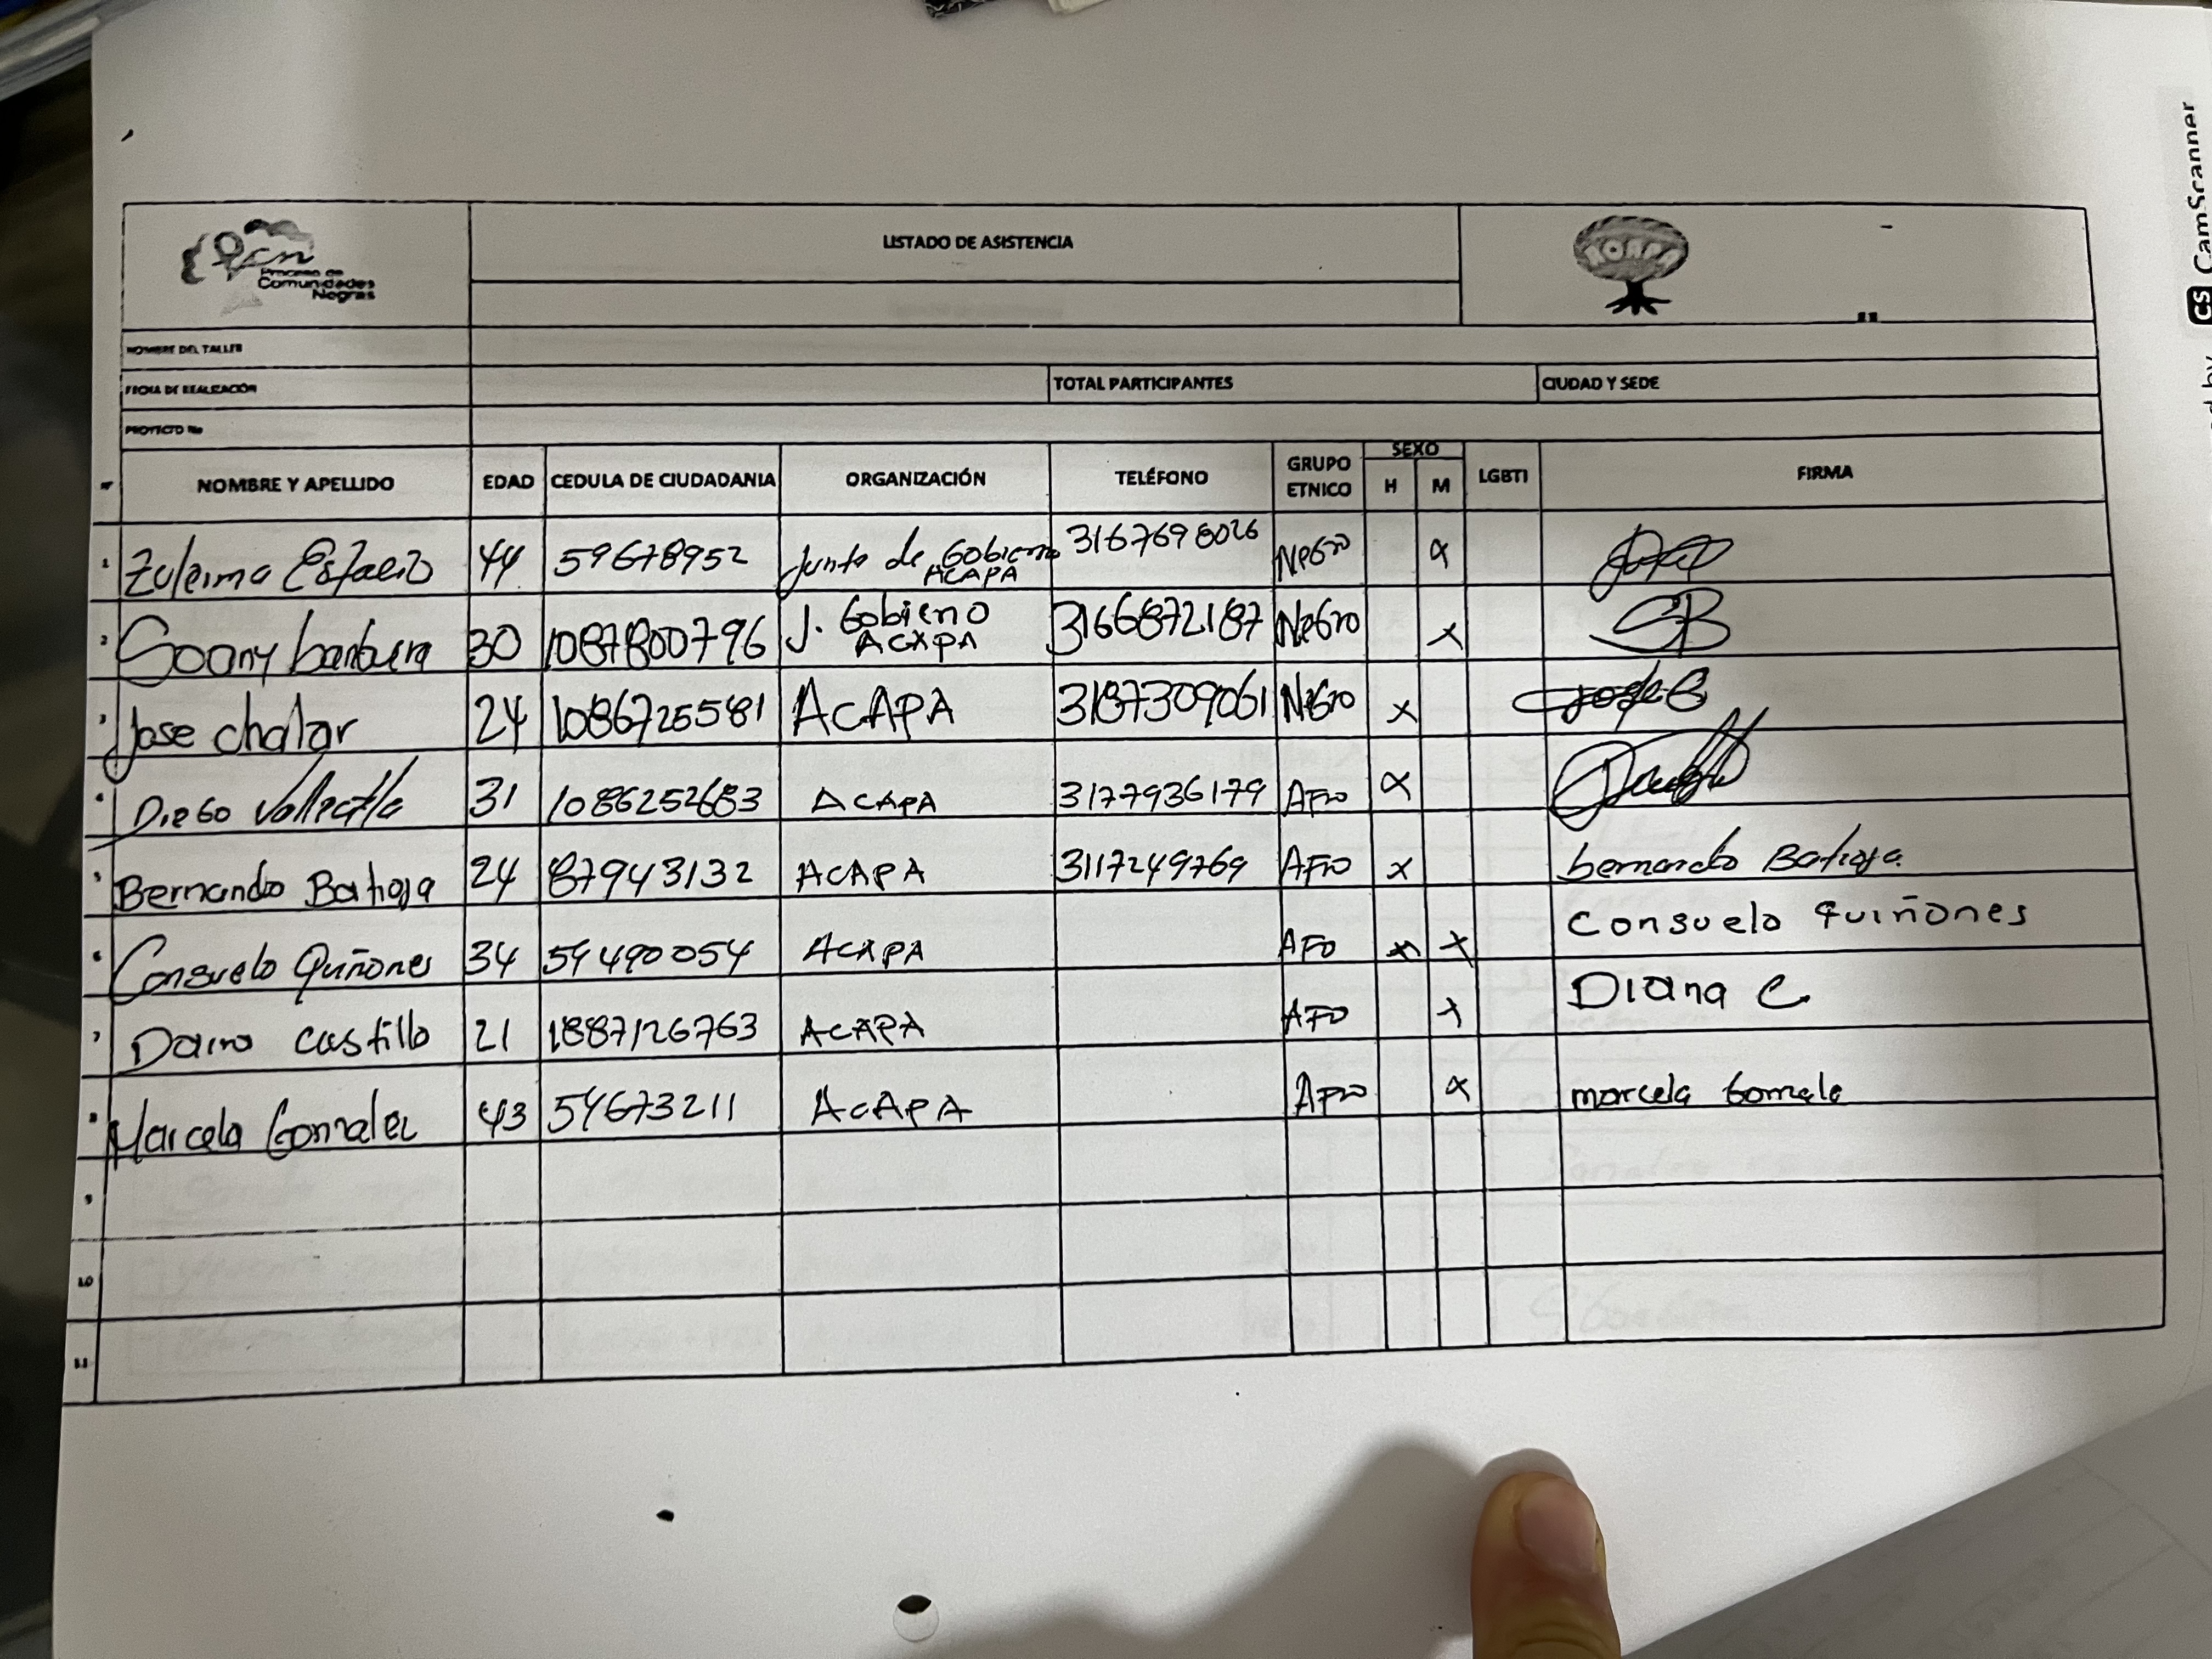 Pcn
Proceso de
Comunidades
Negras
LISTADO DE ASISTENCIA
NOMBRE DEL TALLER
FECHA DE REALIZACIÓN TOTAL PARTICIPANTES CIUDAD Y SEDE
PROYECTO No
NOMBRE Y APELLIDO EDAD CEDULA DE CIUDADANIA ORGANIZACIÓN TELÉFONO GRUPO ETNICO SEXO H M LGBTI FIRMA
1 Zuleima 44 59678952 Junta de Gobierno ACAPA Negro x
2 30 1087800796 J. Gobieno ACAPA 3166872187 Negro x SB
3 Jose chalar 24 1086725581 ACAPA 3187309061 Negro x Jose C
4 Diego Vallecilla 31 1086252683 ACAPA 3177936179 Afro x
5 Bernando Batioja 24 87943132 ACAPA 3117249769 AFro x bernardo Batioja
6 Consuelo Quiñones 34 59490054 ACAPA AFO x x Consuelo Quiñones
7 castillo 21 1887126763 ACAPA AFO x Diana C
8 Marcela Gonzalez 43 59673211 ACAPA Afro x marcela Gonzale
9
10
11
CS CamScanner